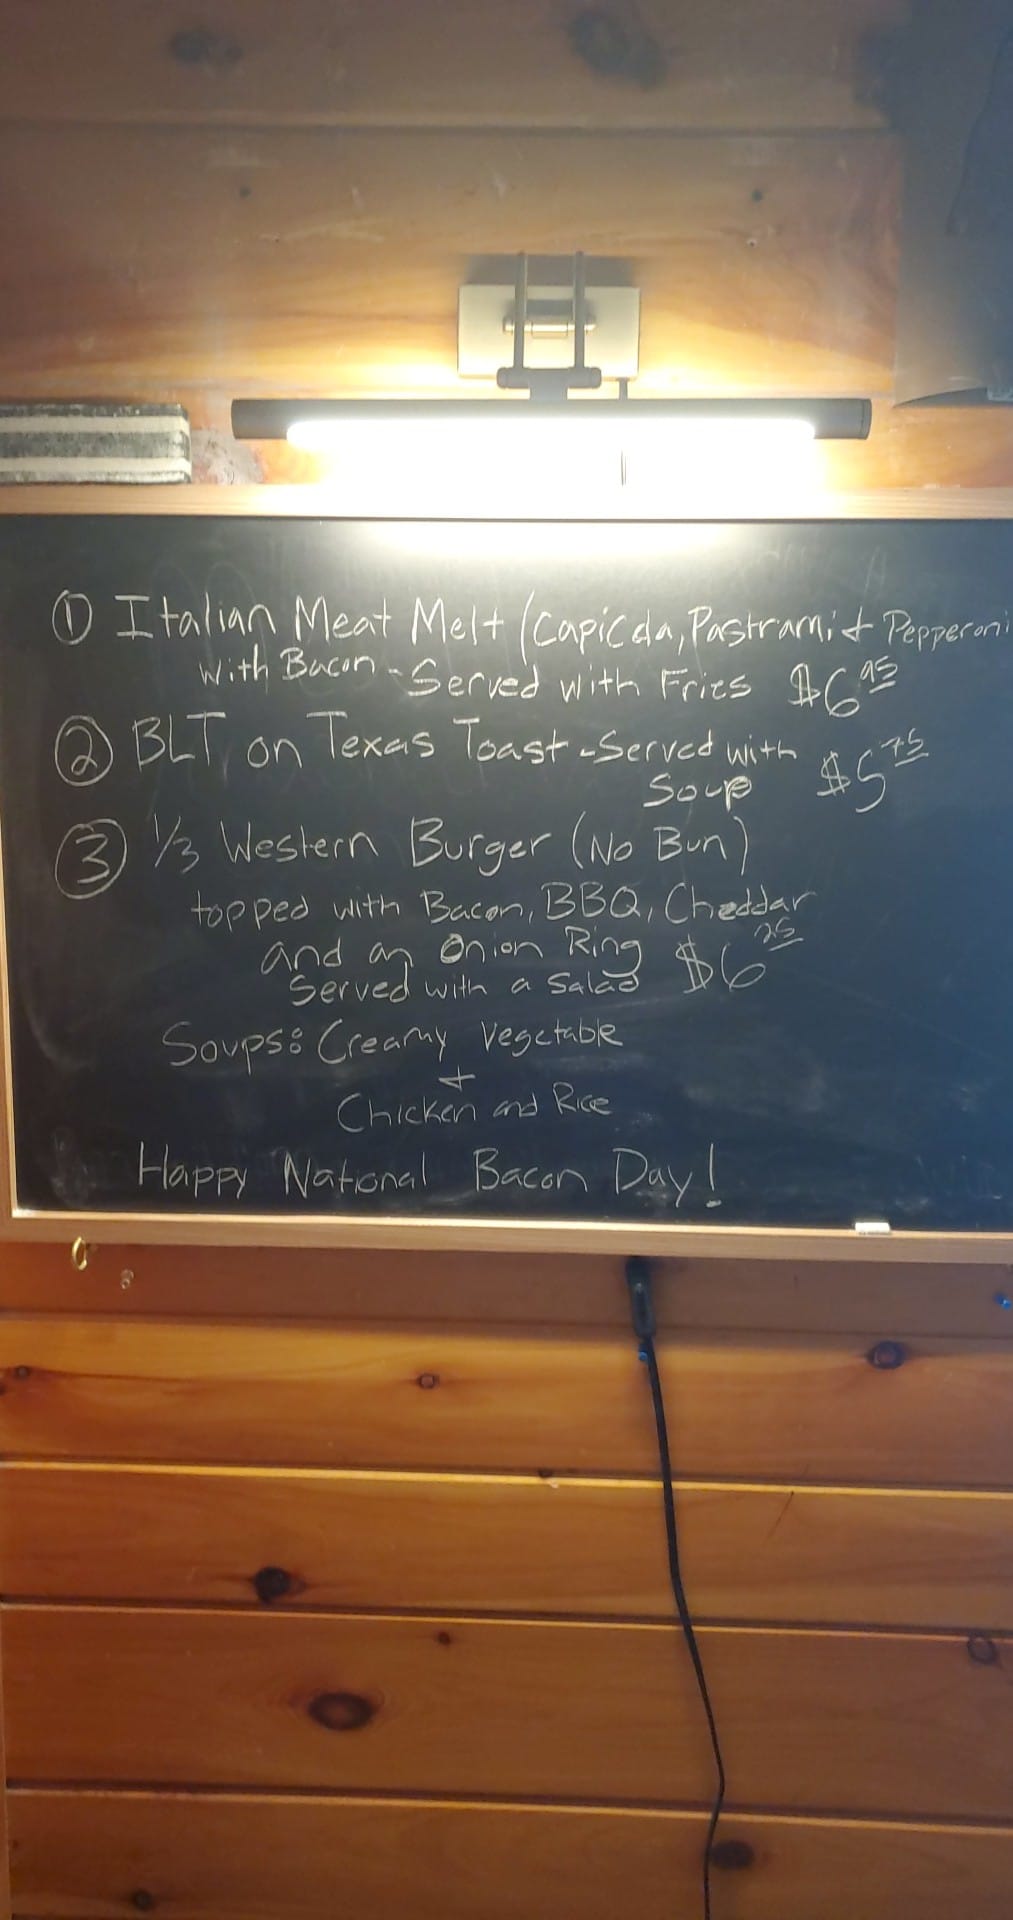 ① Italian Meat Melt (Capicola, Pastrami + Pepperoni
with Bacon - Served with Fries $6 95
② BLT on Texas Toast - Served with
Soup $5 75
③ 1/3 Western Burger (No Bun)
topped with Bacon, BBQ, Cheddar
and an Onion Ring $6 25
Served with a Salad
Soups: Creamy Vegetable
+
Chicken and Rice
Happy National Bacon Day!